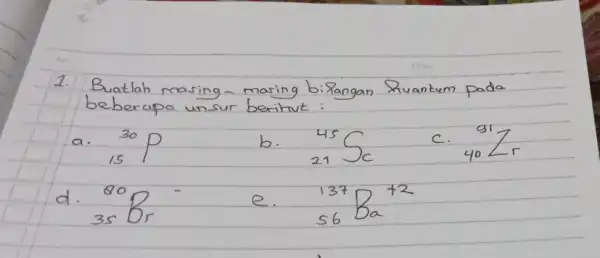 1. Buatlah masing-masing bilangan Quantum pada
beberapa unsur berikut :
a. 30 15 P b. 45 21 Sc c. 91 40 Zr
d. 80 35 Br - e. 137 56 Ba +2